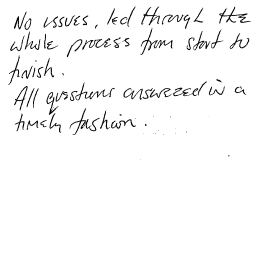 No issues, led through the
whole process from start to
finish.
All questions answered in a
timely fashion.